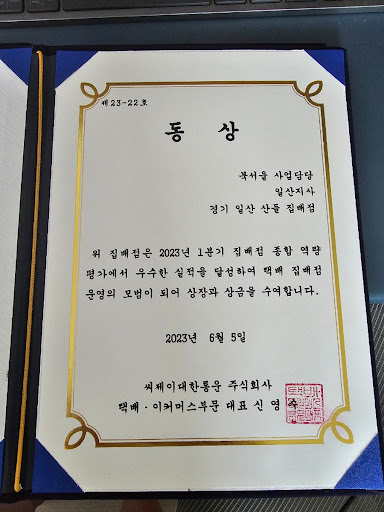 제 23-22호
동 상
북서울 사업담당
일산지사
경기 일산 산들 집배점
위 집배점은 2023년 1분기 집배점 종합 역량
평가에서 우수한 실적을 달성하여 택배 집배점
운영의 모범이 되어 상장과 상금을 수여합니다.
2023년 6월 5일
씨제이대한통운 주식회사
택배·이커머스부문 대표 신 영 수